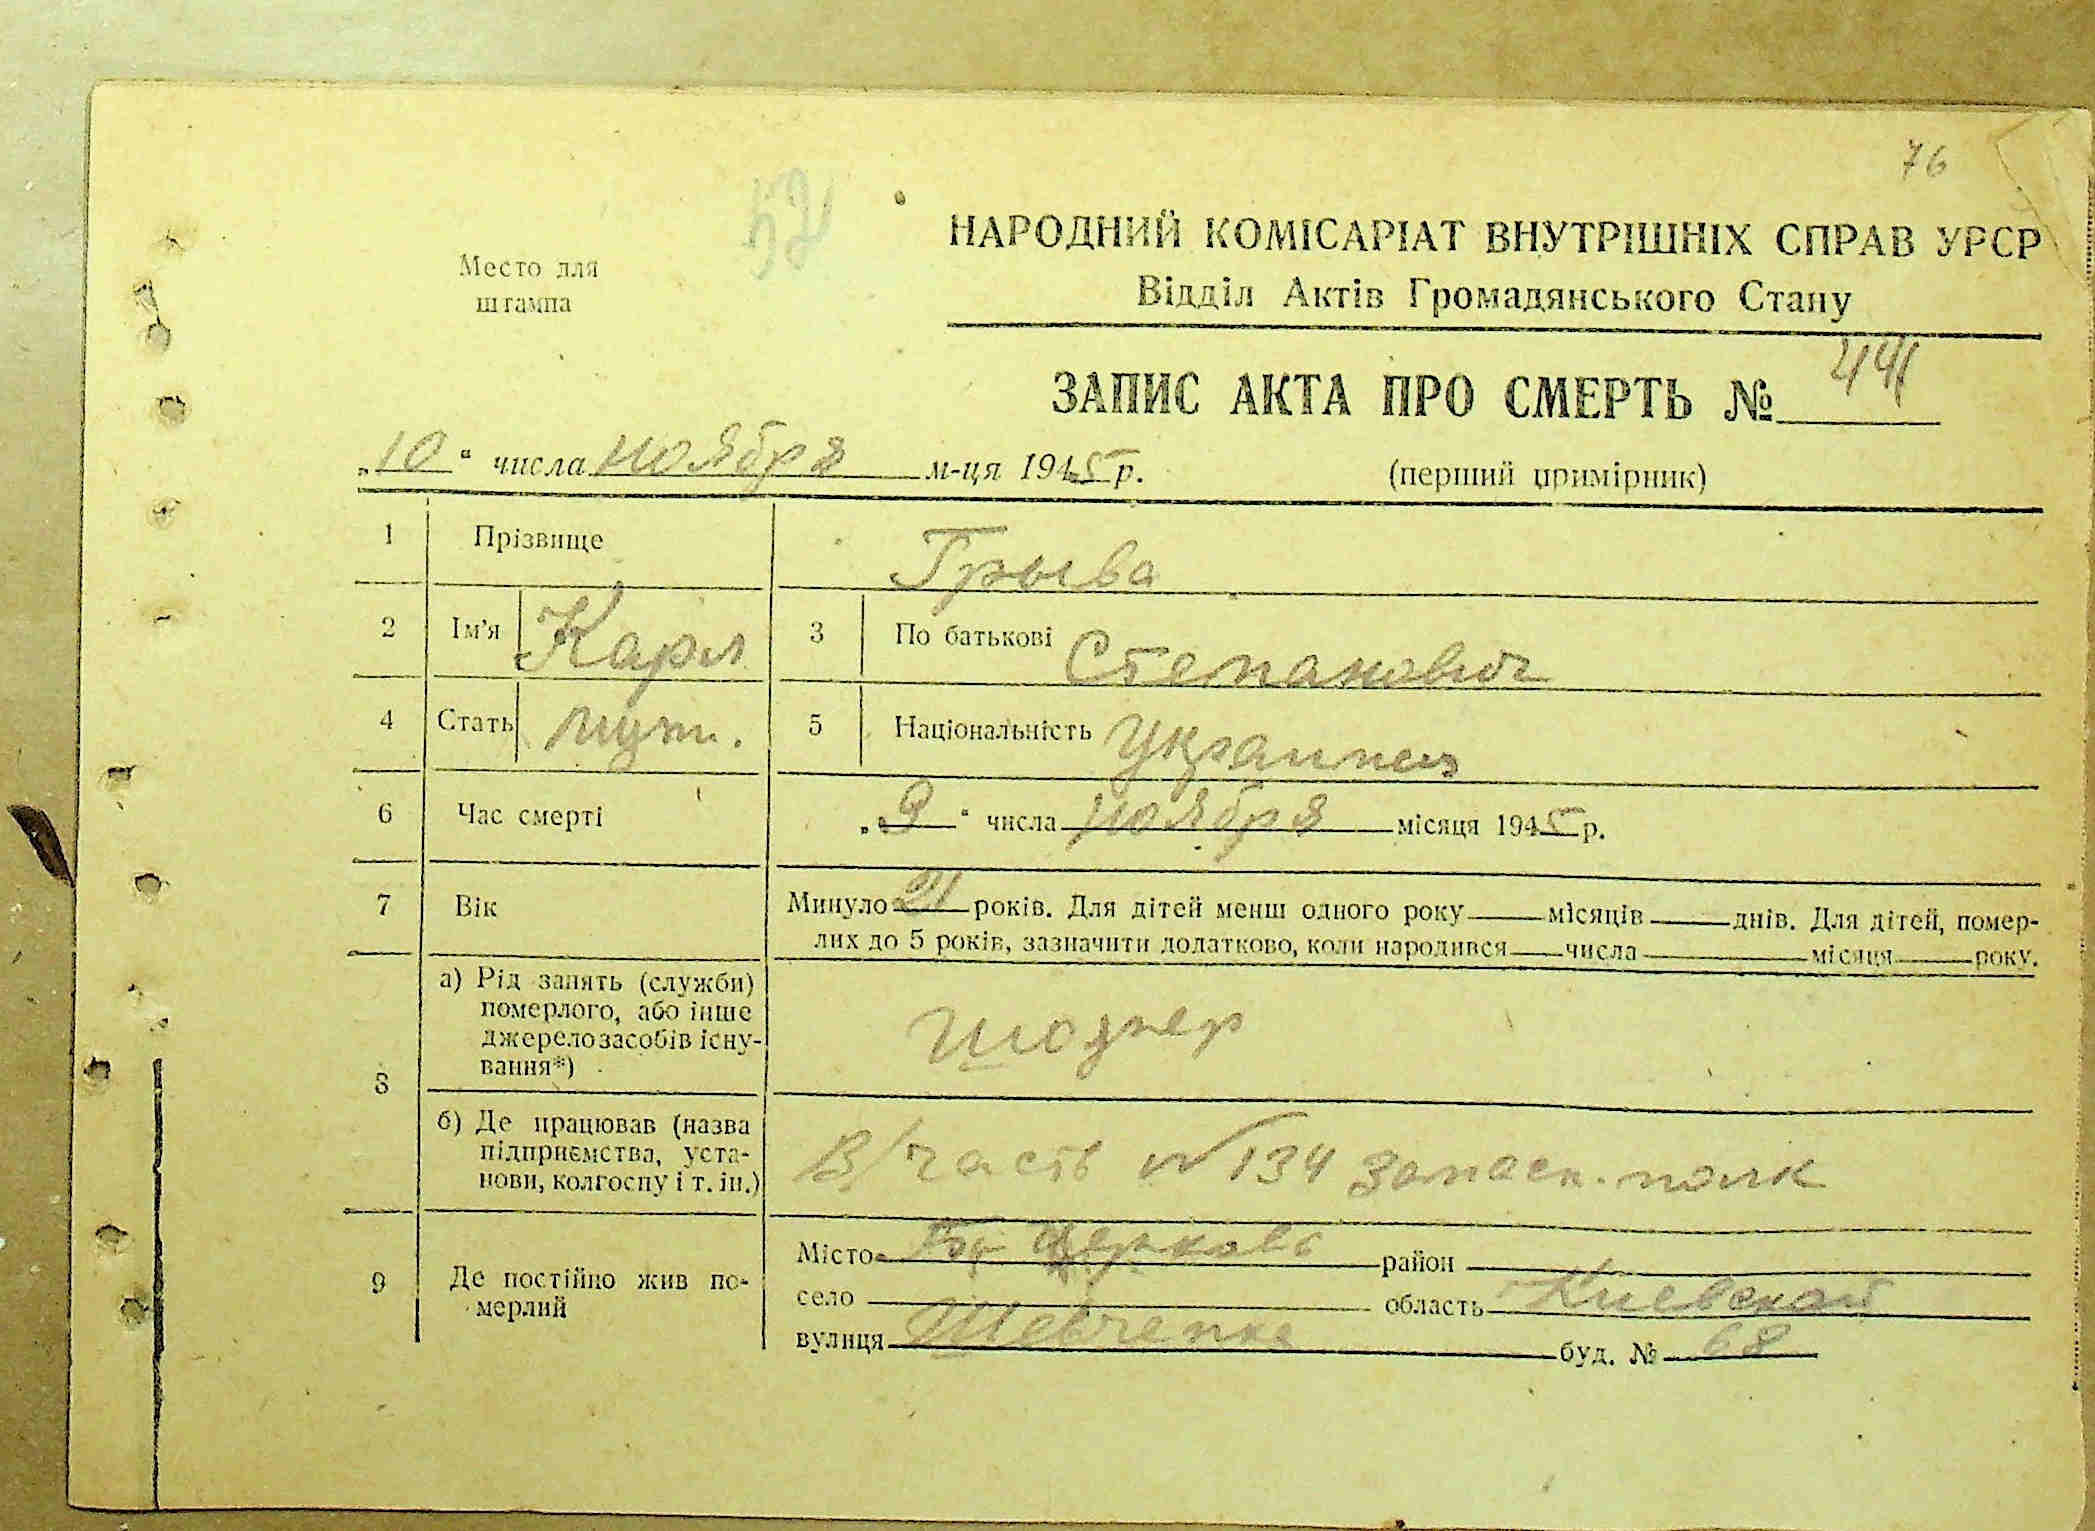 76
52
Место для
штампа
НАРОДНИЙ КОМІСАРІАТ ВНУТРІШНІХ СПРАВ УРСР
Відділ Актів Громадянського Стану
ЗАПИС АКТА ПРО СМЕРТЬ № 441
„10“ числа ноября м-ця 1945 р.
(перший примірник)
1 Прізвище Грыва
2 Ім'я Карл 3 По батькові Степанович
4 Стать муж. 5 Національність Украинец
6 Час смерті „9“ числа ноября місяця 1945 р.
7 Вік Минуло 21 років. Для дітей менш одного року місяців днів. Для дітей, помер-
лих до 5 років, зазначити додатково, коли народився числа місяця року.
8 а) Рід занять (служби)
померлого, або інше
джерело засобів існу-
вання*)
шофер
б) Де працював (назва
підприємства, уста-
нови, колгоспу і т. ін.)
В/часть № 134 запасн. полк
9 Де постійно жив по-
мерлий
Місто Б. Церковь район
село область Киевская
вулиця Шевченка буд. № 68